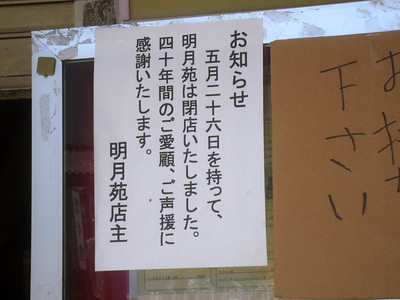 お知らせ
五月二十六日を持って、
明月苑は閉店いたしました。
四十年間のご愛顧、ご声援に
感謝いたします。
明月苑店主
下さい